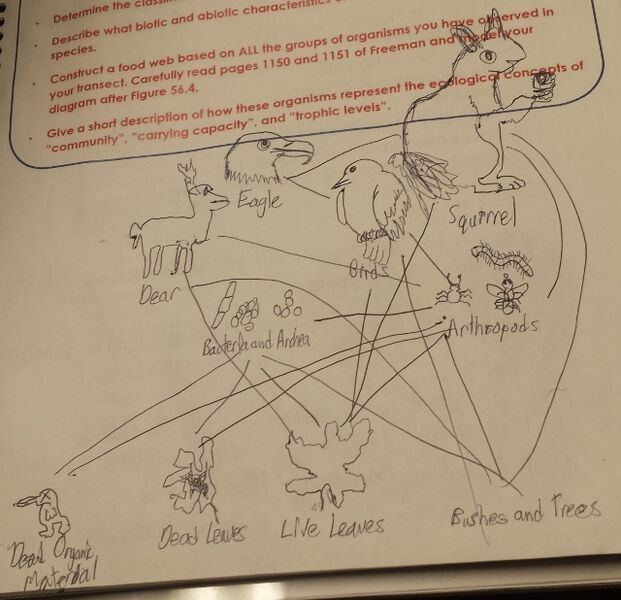 Determine the
Describe what biotic and abiotic characteristics
species.
Construct a food web based on ALL the groups of organisms you have observed in
your transect. Carefully read pages 1150 and 1151 of Freeman and model your
diagram after Figure 56.4.
Give a short description of how these organisms represent the ecological concepts of
"community", "carrying capacity", and "trophic levels".
Eagle
Squirrel
Dear
Birds
Arthropods
Bacteria and Archea
Dead Leaves
Live Leaves
Bushes and Trees
Dead Organic
Material